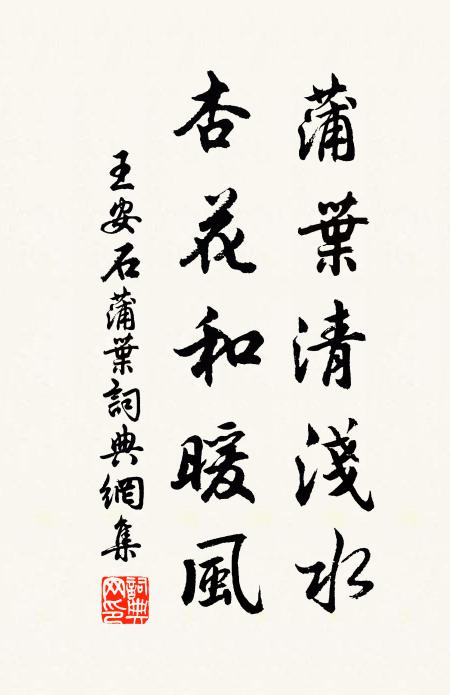 蒲葉清淺水
杏花和暖風
王安石蒲葉詞典網集
詞典
網印